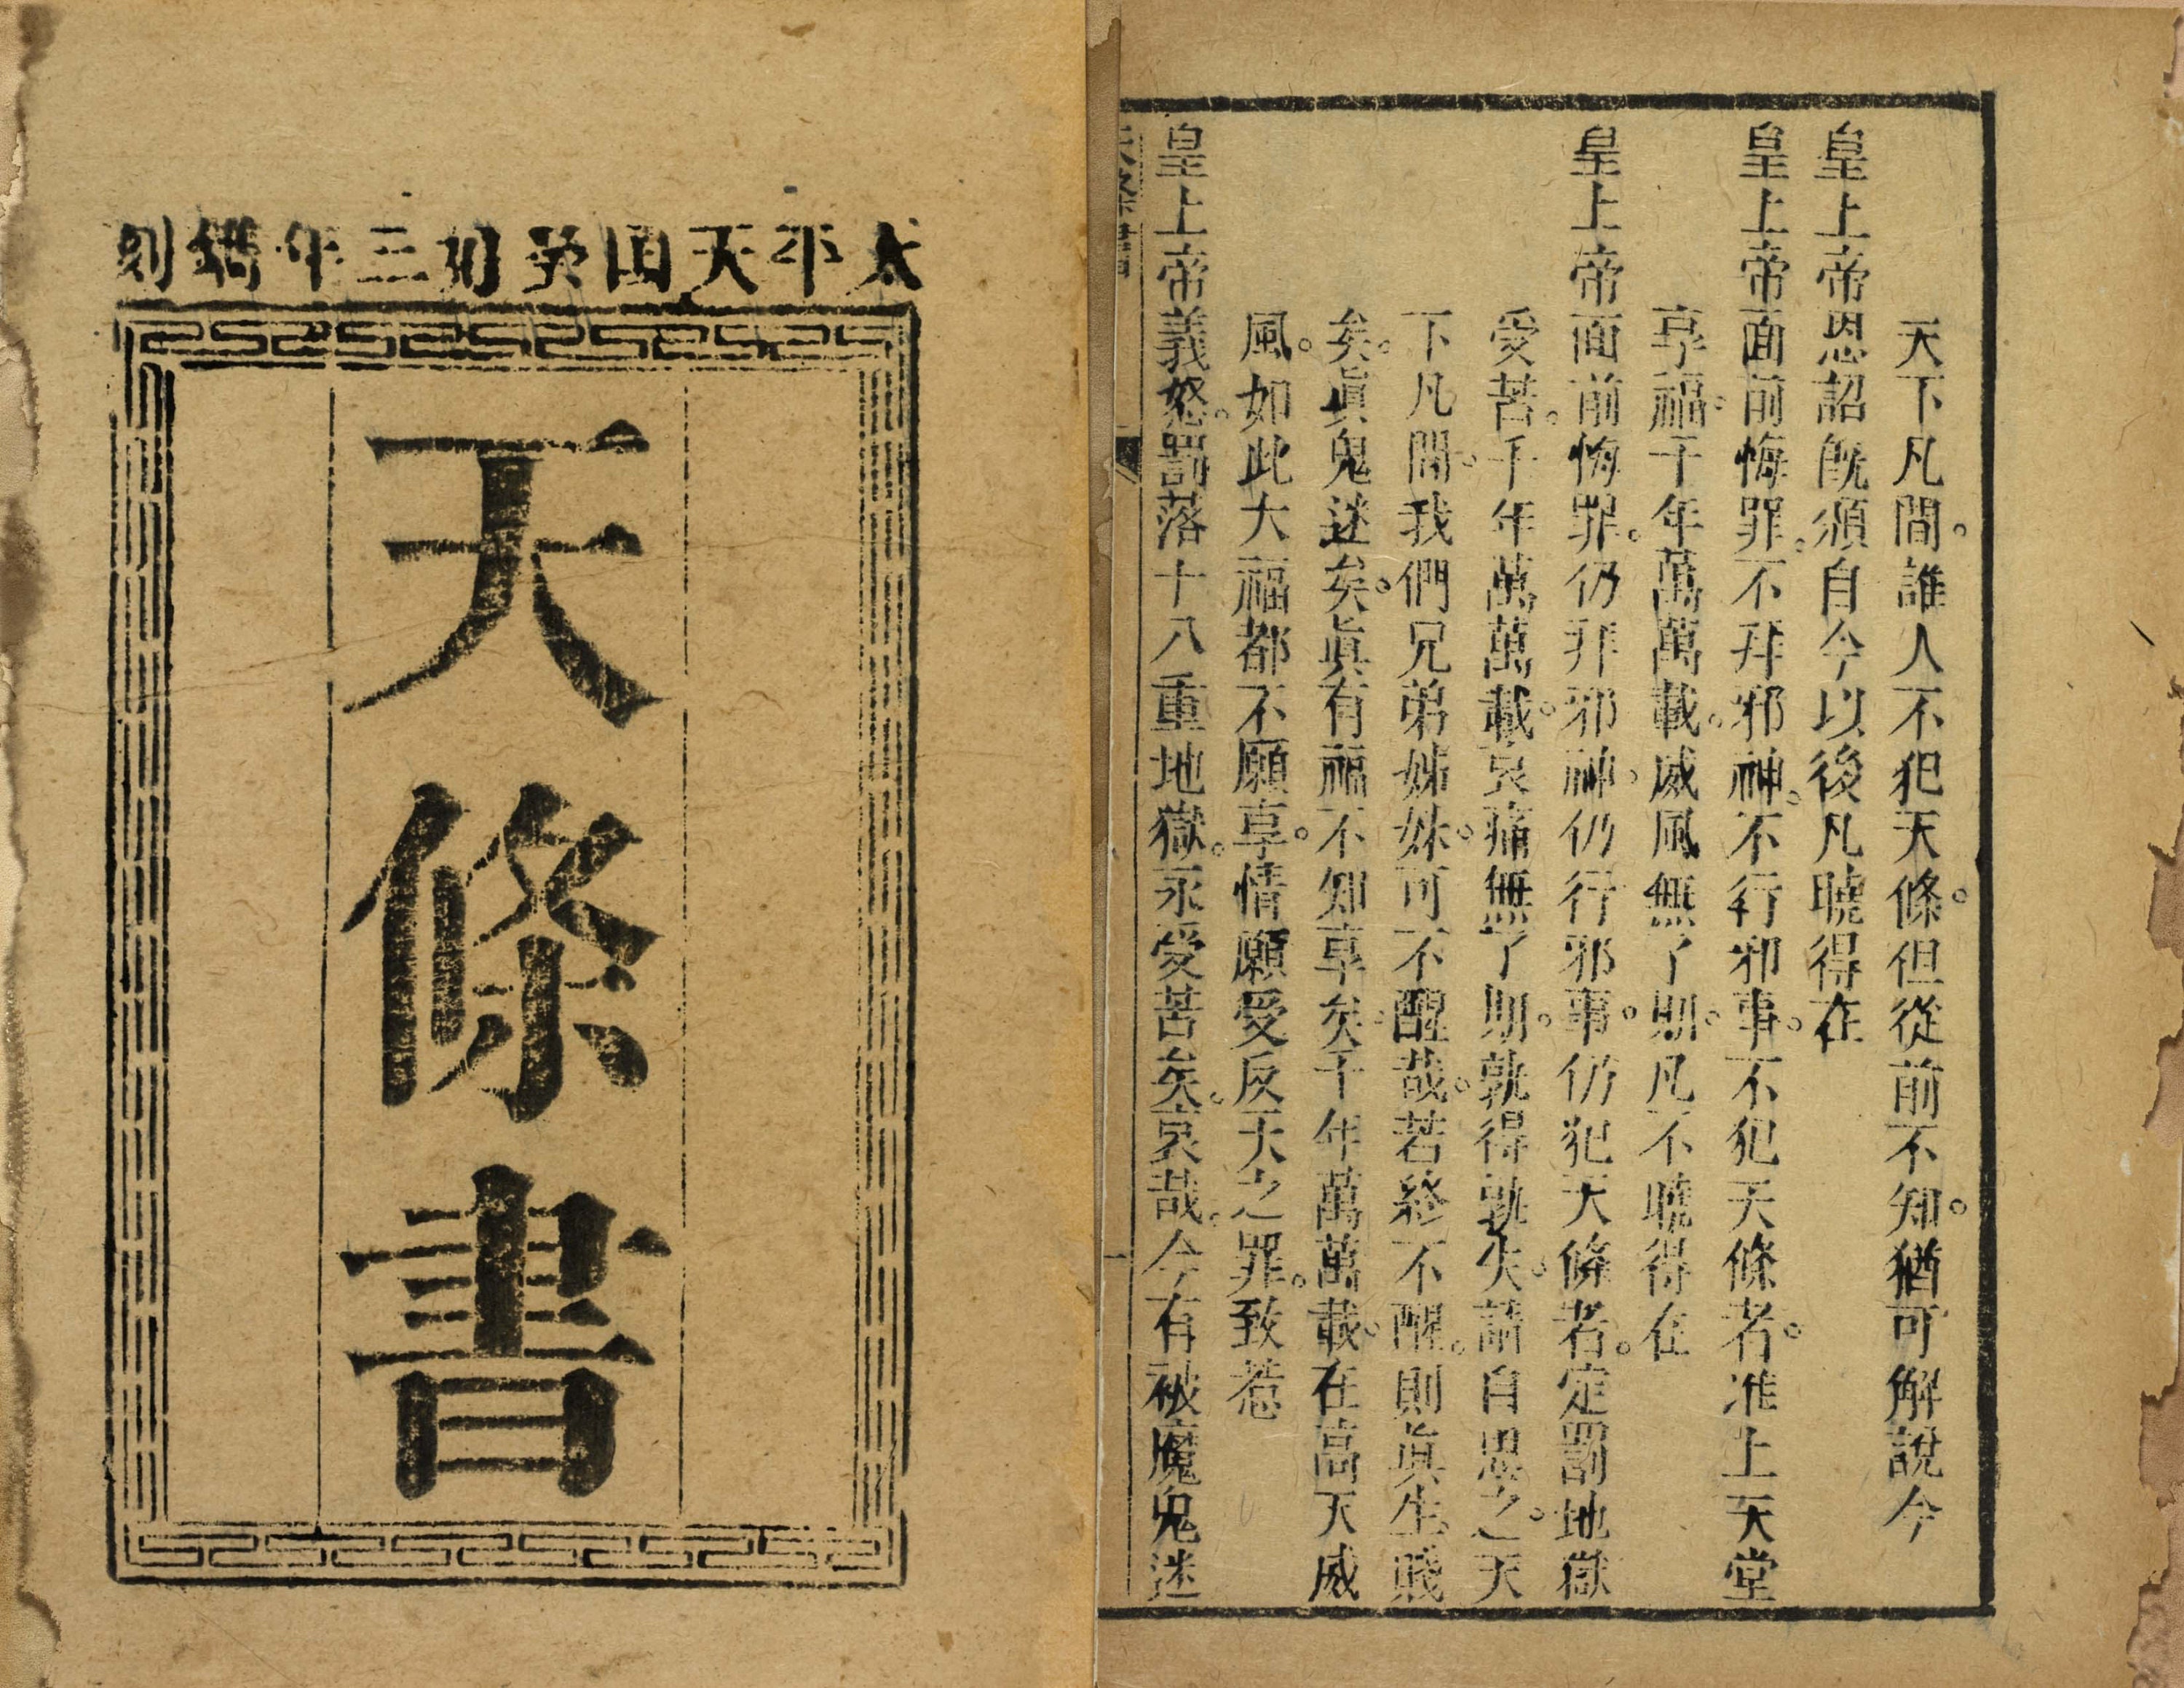 太平天囯癸好三年鐫刻
天條書
天下凡間。誰人不犯天條。但從前不知。猶可解說今
皇上帝恩詔旣頒自今以後凡曉得在
皇上帝面前悔罪。不拜邪神。不行邪事。不犯天條者。准上天堂
享福。千年萬萬載。威風無了期。凡不曉得在
皇上帝面前悔罪。仍拜邪神。仍行邪事。仍犯天條者。定罰地獄
受苦。千年萬萬載。哀痛無了期。孰得孰失。請自思之。天
下凡間。我們兄弟姊妹。可不醒哉。若終不醒。則眞生賤
矣。眞鬼迷矣。眞有福不知享矣。千年萬萬載。在高天威
風。如此大福都不願享。情願受反天之罪。致惹
皇上帝義怒。罰落十八重地獄。永受苦矣。哀哉。今有被魔鬼迷
天條書
一